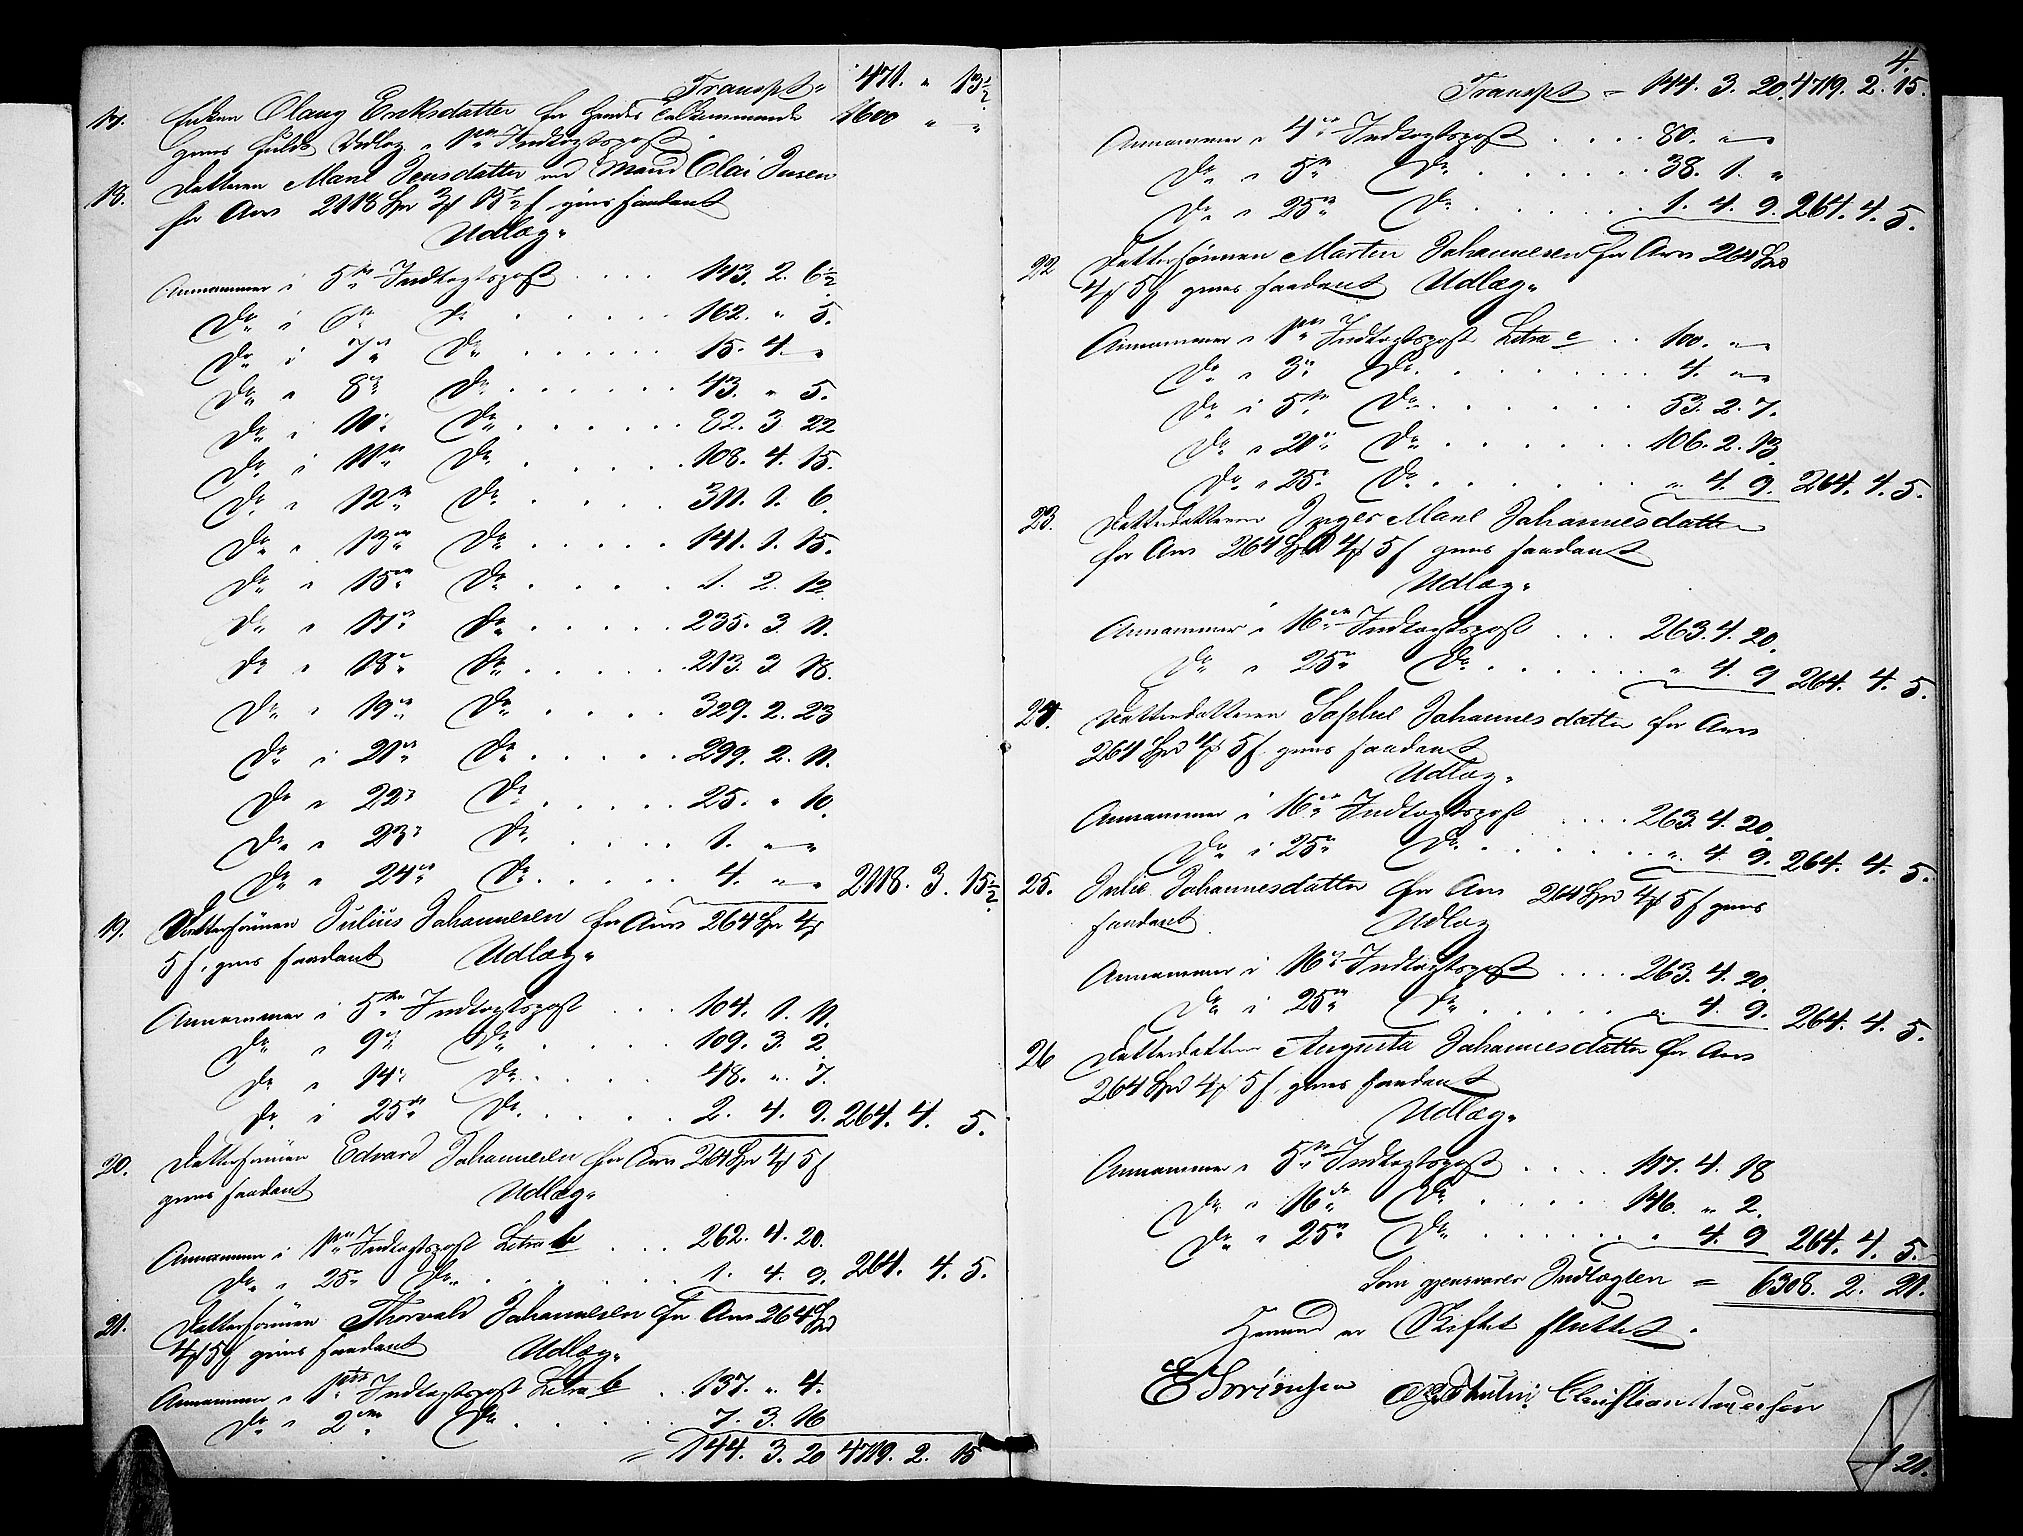 Transpt. 471. " 13½
17. Enken Olaug Eriksdatter for hendes tilkommende 1600 " "
gives fuldt Udlæg i 1ste Indtægtspost
18. Datteren Mane Jensdatter ved Mand Olai Jensen
for Arv 2118 Spd 3 15½ s gives saadant
Udlæg.
Annammer i 5te Indtægtspost . . . . 143. 2. 6½
Do i 6te Do . . . . . . 162. " 5.
Do i 7de Do . . . . . . 15. 4. "
Do i 8de Do . . . . . . 43. " 5.
Do i 10de Do . . . . . . 82. 3 22
Do i 11te Do . . . . . . 108. 4. 15.
Do i 12te Do . . . . . 311. 1. 6.
Do i 13de Do . . . . . 141. 1. 15.
Do i 15de Do . . . . . 1. 2. 12.
Do i 17de Do . . . . . 235. 3. 11.
Do i 18de Do . . . . . 213. 3 18.
Do i 19de Do . . . . . 329. 2. 23
Do i 21de Do . . . . . 299. 2. 11.
Do i 22de Do . . . . . 25. " 10.
Do i 23de Do . . . . . 1. " "
Do i 24de Do . . . . . 4. " " 2118. 3. 15½
19. Dattersønnen Julius Johannesen for Arv 264 Spd 4
5 s. gives saadant Udlæg.
Annammer i 5te Indtægtspost . . . 104. 1. 11.
Do i 9de Do . . . . . 109. 3. 2.
Do i 14de Do . . . . . 48. " 7.
Do i 25de Do . . . . . 2. 4. 9. 264. 4. 5.
20. Dattersønnen Edvard Johannesen for Arv 264 Spd 4 5 s
gives saadant Udlæg.
Annammer i 1ste Indtægtspost Litra b . . . 262. 4. 20.
Do i 25de Do . . . . . . . 1. 4. 9. 264. 4. 5.
21. Dattersønnen Thorvald Johannesen for Arv 264 Spd
4 5 s gives saadant Udlæg.
Annammer i 1ste Indtægtspost Litra b . . 137. " 4.
Do i 2den Do . . . . . . 7. 3. 16
= 144. 3. 20 4719. 2. 15
4.
Transpt = 144. 3. 20. 4719. 2. 15.
Annammer i 4de Indtægtspost . . . . 80. " "
Do i 5te Do . . . . . . . 38. 1. "
Do i 25de Do . . . . . . . 1. 4. 9. 264. 4. 5.
22 Dattersønnen Martin Johannesen for Arv 264 Spd
4 5 s gives saadant Udlæg.
Annammer i 1ste Indtægtspost Litra c . . 100. " "
Do i 3de Do . . . . . . . . 4. " "
Do i 5te Do . . . . . . . 53. 2. 7.
Do i 20de Do . . . . . . 106. 2. 13.
Do i 25de Do . . . . . . . " 4. 9. 264. 4. 5.
23. Datterdatteren Inger Mane Johannesdatter
for Arv 264 Spd 4 5 s gives saadant
Udlæg.
Annammer i 16de Indtægtspost . . . 263. 4. 20.
Do i 25de Do . . . . . . " 4. 9 264. 4. 5.
24. Datterdatteren Sophie Johannesdatter for Arv
264 Spd 4 5 s. gives saadant
Udlæg.
Annammer i 16de Indtægtspost . . . . 263. 4. 20.
Do i 25de Do . . . . . . " 4. 9. 264. 4. 5.
25. Julie Johannesdatter for Arv 264 Spd 4 5 s gives
saadant Udlæg
Annammer i 16de Indtægtspost . . . . 263. 4. 20.
Do i 25de Do . . . . . . " 4. 9. 264. 4. 5.
26 Datterdatteren Augusta Johannesdatter for Arv
264 Spd 4 5 s, gives saadant
Udlæg.
Annammer i 5te Indtægtspost . . . . 117. 4. 18
Do i 16de Do . . . . . 146. " 2.
Do i 25de Do . . . . . . " 4. 9 264. 4. 5.
Som gjensvarer Indtægten = 6308. 2. 21.
Hermed er Skiftet sluttet.
E Sørensen Christian Andersen
121.